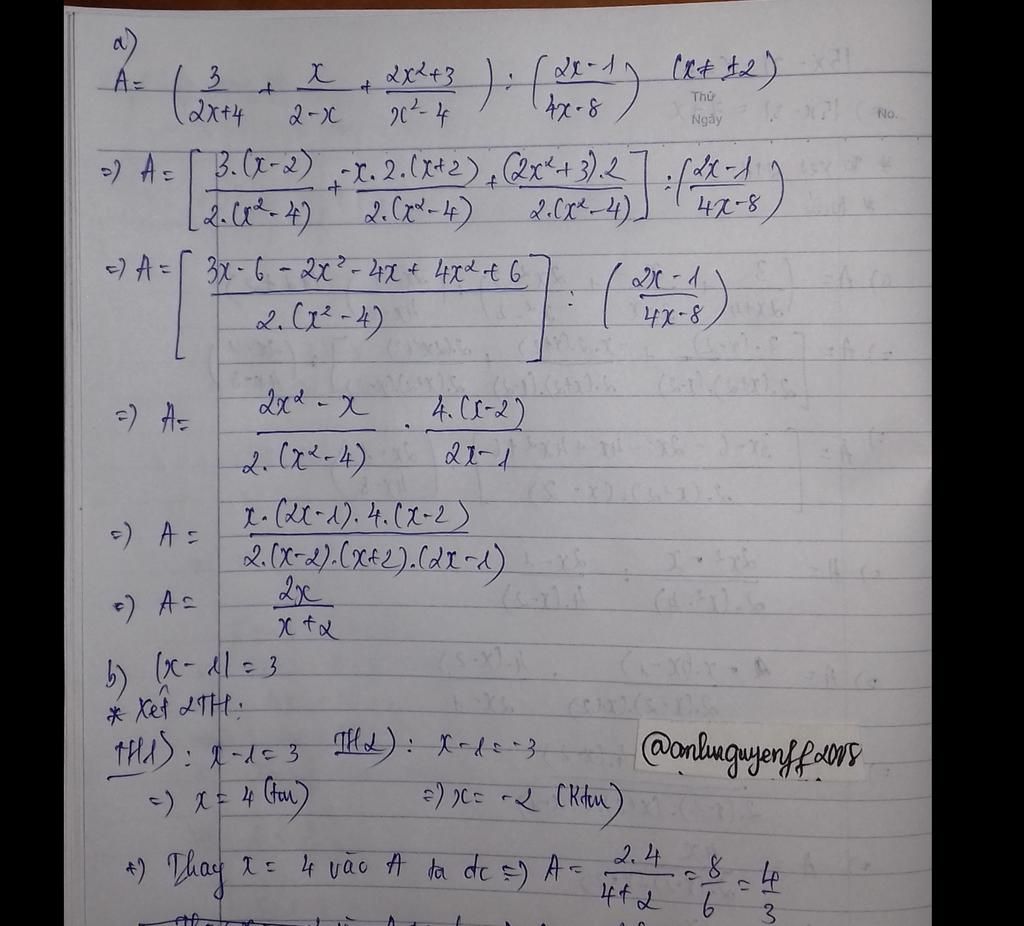 a)
A = ( 3/(2x+4) + x/(2-x) + (2x²+3)/(x²-4) ) : ( (2x-1)/(4x-8) ) (x ≠ ±2)
Thứ
Ngày
No.
=) A = [ 3.(x-2)/(2.(x²-4)) + -x.2.(x+2)/(2.(x²-4)) + (2x²+3).2/(2.(x²-4)) ] : ( (2x-1)/(4x-8) )
=) A = [ (3x-6-2x²-4x+4x²+6)/(2.(x²-4)) ] : ( (2x-1)/(4x-8) )
=) A = (2x²-x)/(2.(x²-4)) . 4.(x-2)/(2x-1)
=) A = x.(2x-1).4.(x-2)/(2.(x-2).(x+2).(2x-1))
=) A = 2x/(x+2)
b) |x-1| = 3
* Xét 2TH:
TH1): x-1=3 TH2): x-1=-3
=) x = 4 (tm) =) x = -2 (Ktm)
+) Thay x = 4 vào A ta dc =) A = 2.4/(4+2) = 8/6 = 4/3